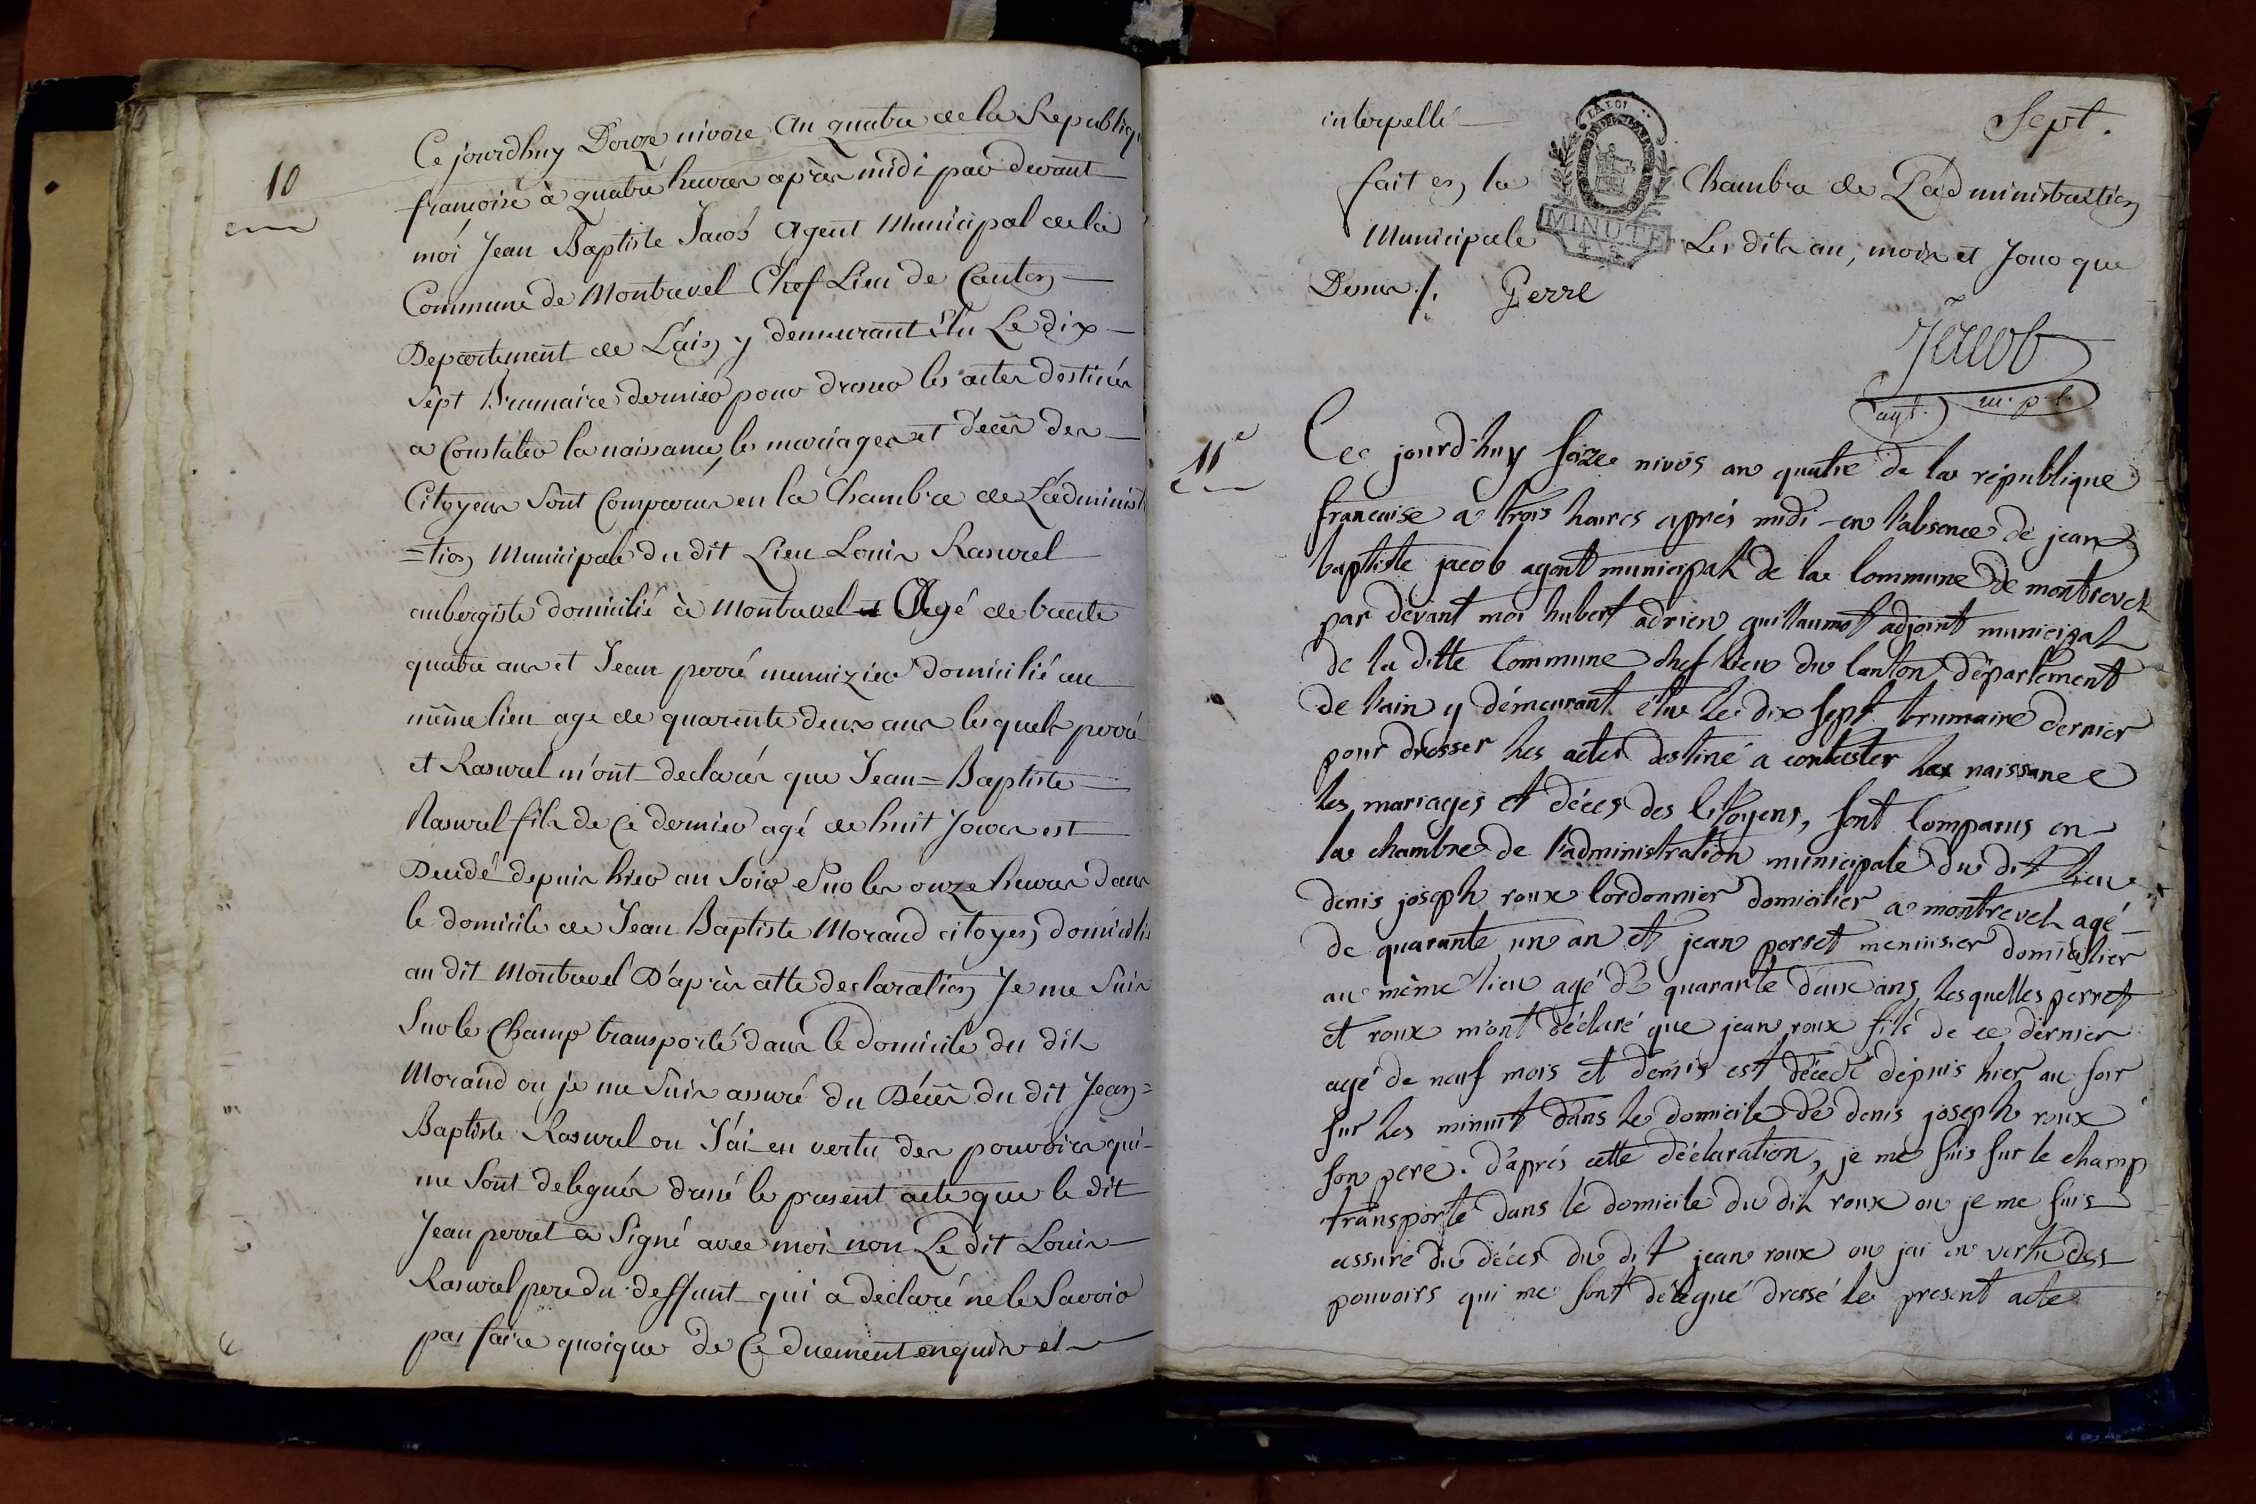 10
Ce jourdhuy Douze nivose an quatre de la Republiq
francoise à quatre heures après midi par devant
moi Jean Baptiste Jacob agent Municipal de la
Commune de Montrevel Chef Lieu de Canton
Departement de L'ain y demeurant Elu Le dix
sept Brumaire dernier pour dresser les actes destinés
a Constater la naissance, les mariages et décès des
Citoyens Sont Comparus en la Chambre de L'administ
=tion Municipale du dit Lieu Louis Rasurel
aubergiste domicilié à Montrevel Agé de trente
quatre ans et Jean perré menuizier domicilié au
même lieu age de quarente deux ans lesquels perré
et Rasurel m'ont declarés que Jean=Baptiste
Rasurel fils de Ce dernier agé de huit Jours est
Decedé depuis hier au Soir Sur les onze heures dans
le domicile de Jean Baptiste Morand citoyen domicilié
au dit Montrevel D'après cette declaration Je me Suis
Sur le Champ transporté dans le Domicile du dit
Morand ou je me Suis assuré du Décès du dit Jean=
Baptiste Rasurel ou J'ai en vertu des pouvoirs qui
me Sont delegués dressé le present acte que le dit
Jean perret a Signé avec moi non Le dit Louis
Rasurel pere du deffunt qui a declaré ne le Savoir
pas faire quoique de Ce duement enquis et
interpellé
Sept.
LA LOI
MINUTE
fait en la Chambre de L'administration
Municipale Les dits an, mois et Jour que
Dessus /. Perre
Jacob
agt. m.pal.
11e
Cee jourd'huy seize nivôs an quatre de la république
francaise a trois heures aprés midi en l'absence de jean
baptiste jacob agent municipal de la Commune de montrevel
par devant moi hubert adrien guillaumot adjoint municipal
de la ditte Commune chef lieu du Canton département
de l'ain y démeurant élu le dix sept brumaire dernier
pour dresser les actes destiné a contester les naissance
les mariages et déces des Citoyens, sont Comparus en
la chambre de l'administration municipale du dit lieu
denis joseph roux Cordonnier domicilier a montrevel agé
de quarante un an et jean perret menuisier domicilier
au même lieu agé de quarante deux ans, lesquelles perret
et roux m'ont déclaré que jean roux fils de ce dernier
agé de neuf mois et demis est décedé dépuis hier au soir
sur les minuit dans le domicile de denis joseph roux
son pere. d'aprés cette déclaration, je me suis sur le champ
transporté dans le domicile du dit roux ou je me suis
assuré du déces du dit jean roux ou jai en vertu des
pouvoirs qui me sont délégué dressé le present acte